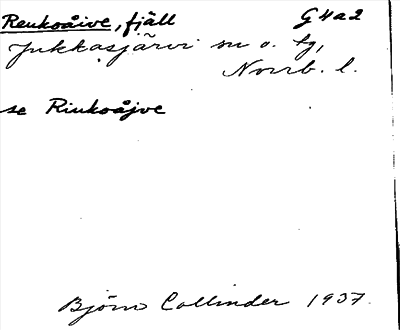 Reukoåive, fjäll G4a2
Jukkasjärvi sn o. tg,
Norrb. l.
se Riukoåjve
Björn Collinder 1937.